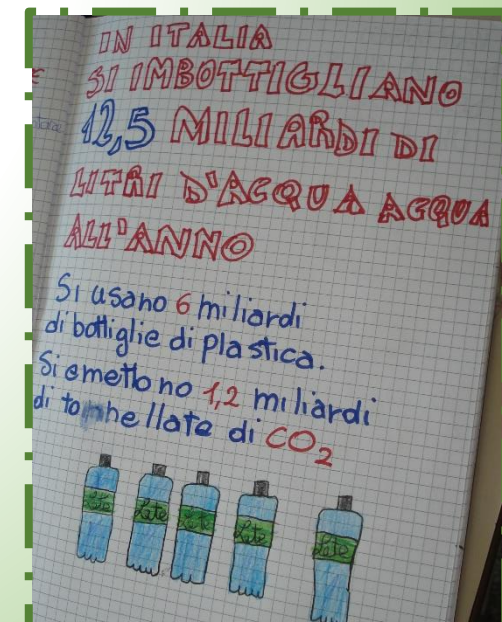 IN ITALIA
SI IMBOTTIGLIANO
12,5 MILIARDI DI
LITRI D'ACQUA ACQUA
ALL'ANNO
Si usano 6 miliardi
di bottiglie di plastica.
Si emettono 1,2 miliardi
di tonnellate di CO2
Lete Lete Lete Lete Lete